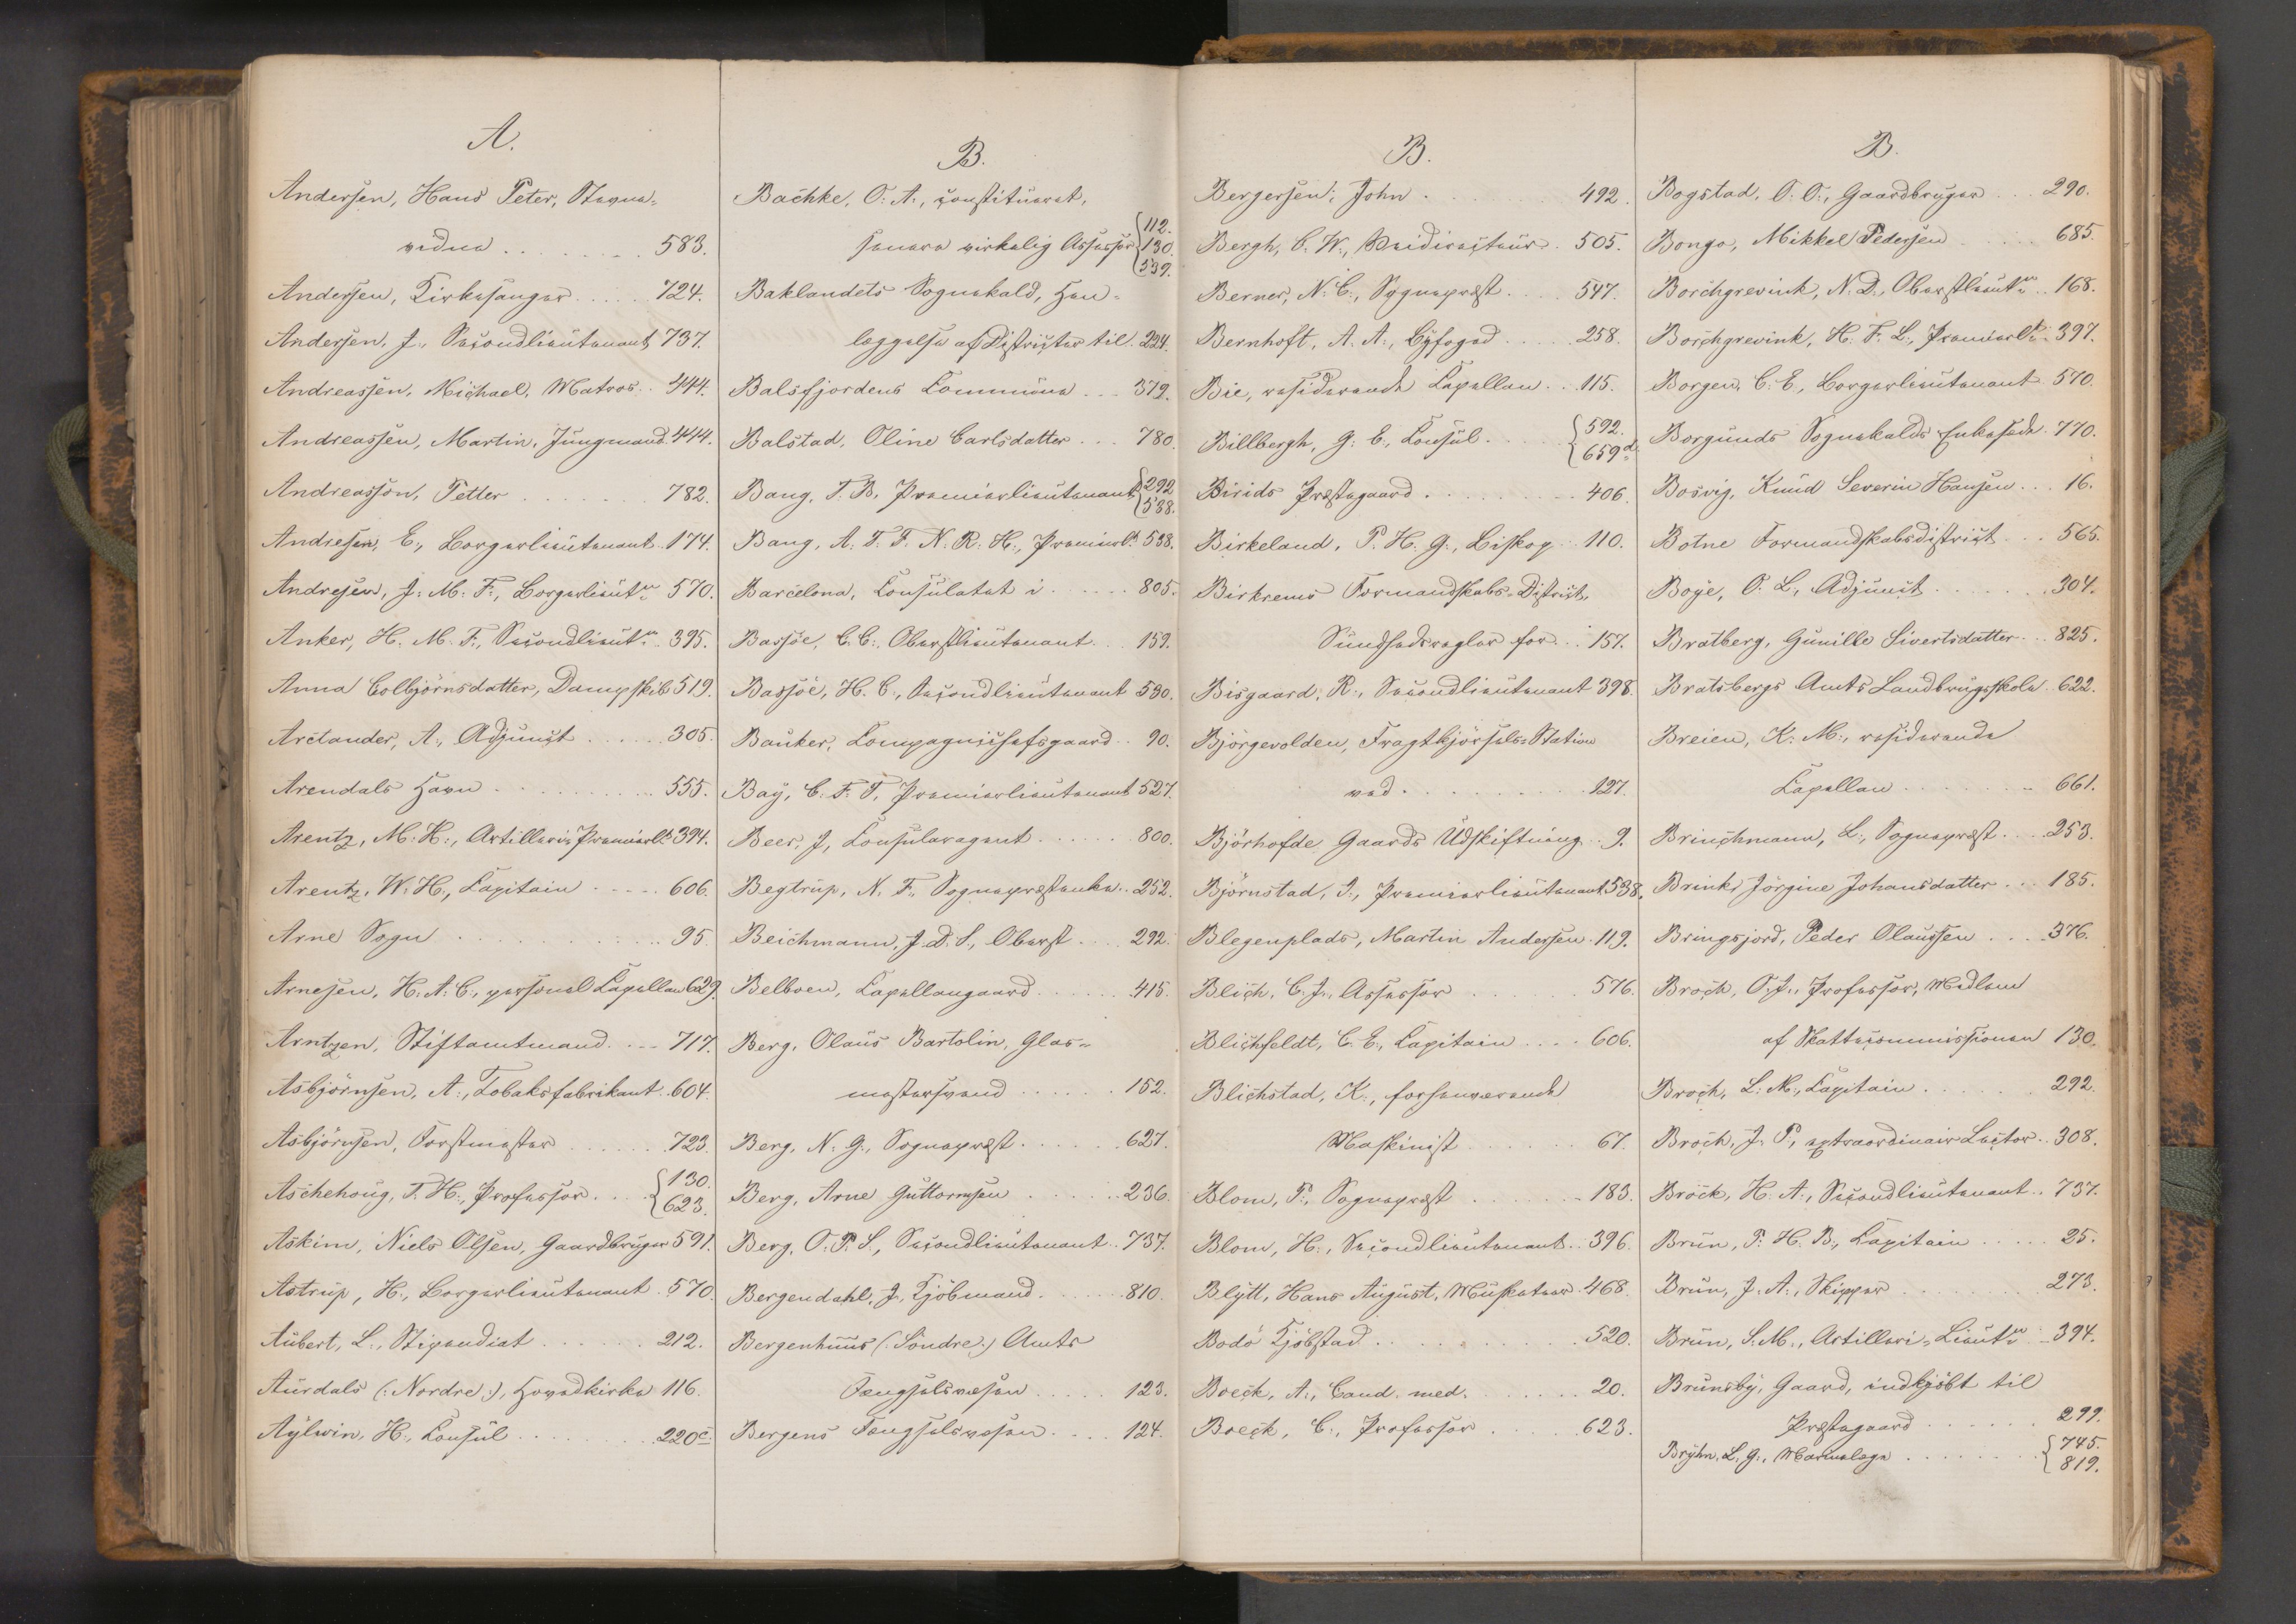 A.
Andersen, Hans Peter, Stervu-
vedna ........ 583.
Andersen, Kirkesanger ..... 724.
Andersen, J., Secondlieutenant 737.
Andreassen, Michael, Matros .. 444.
Andreassen, Martin, Jungmand. 444.
Andreasson, Petter ....... 782.
Andresen, E., Borgerlieutenant .. 174.
Andresen, J. M. F., Borgerlieutn. 570.
Anker, H. M. F., Secondlieutn. 395.
Anna Colbjörnsdatter, Dampskib 519.
Arctander, A., Adjunct ..... 305.
Arendals Havn .......... 555.
Arentz, M. H., Artilleri-Premierlt. 394.
Arentz, W. H., Capitain ..... 606.
Arne Sogn .............. 95.
Arnesen, H. A. C., personel Capellan 629.
Arntzen, Stiftamtmand .... 717.
Asbjörnsen, A., Tobaksfabrikant .. 604.
Asbjörnsen, Forstmester ...... 723.
Aschehoug, T. H., Professor .... {130.
{623.
Askim, Niels Olsen, Gaardbruger 591.
Astrup, H., Borgerlieutenant . 570.
Aubert, L., Stipendiat ...... 212.
Aurdals (: Nordre :), Hovedkirke 116.
Aylwin, H., Consul ........ 220c.
B.
Bachke, O. A., constitueret,
senere virkelig Assessor {112.
{130.
{539.
Baklandets Sognekald, Hen-
læggelse af Districter til 224.
Balsfjordens Commune ... 372.
Balstad, Oline Carlsdatter ... 780.
Bang, T. B., Premierlieutenant {292.
{538.
Bang, A. T. F. N. R. H., Premierlt. 538.
Barcelona, Consulatet i ..... 805.
Bassöe, C. C., Oberstlieutenant ... 159.
Bassöe, H. C., Secondlieutenant 530.
Bauker, Compagnichefsgaard .. 90.
Bay, C. F. T., Premierlieutenant 527.
Beer, J., Consularagent ...... 800.
Begtrup, N. F., Sognepræstenke .. 252.
Beichmann, J. D. S., Oberst .... 292.
Belboen, Capellangaard ....... 415.
Berg, Olaus Bartolin, Glas-
mestersvend ...... 152.
Berg, N. G., Sognepræst ...... 627.
Berg, Arne Guttormsen ...... 236.
Berg, O. P. S., Secondlieutenant .. 737.
Bergendahl, J., Kjöbmand ...... 810.
Bergenhuus (: Söndre :) Amts
Fængselsvæsen ..... 123.
Bergens Fængselsvæsen .... 124.
B.
Bergersen, John ........ 492.
Bergh, C. W., Veidirecteur . 505.
Berner, N. C., Sognepræst .... 547.
Bernhoft, A. A., Byfoged ..... 258.
Bie, residerende Capellan .. 115.
Billbergh, G. E., Consul ... {592.
{659d.
Birids Præstegaard ........ 406.
Birkeland, P. H. G., Biskop .. 110.
Birkrems Formandskabs-District,
Sundhedsregler for .. 157.
Bisgaard, R., Secondlieutenant 398.
Bjørgevolden, Fragtkjørsels-Station
ved .......... 127.
Bjørhofde Gaards Udskiftning .. 9.
Björnstad, J., Premierlieutenant 538.
Blegenplads, Martin Andersen . 119.
Blich, C. J., Assessor ....... 576.
Blichfeldt, C. E., Capitain .... 606.
Blichstad, K., forhenværende
Maskinist ....... 67.
Blom, P., Sognepræst ....... 183.
Blom, H., Secondlieutenant .. 396.
Blytt, Hans August, Musketeer . 468.
Bodö Kjöbstad .......... 520.
Boeck, A., Cand. med. ...... 20.
Boeck, C., Professor ...... 623.
B.
Bogstad, O. O., Gaardbruger ... 290.
Bongo, Mikkel Pedersen ...... 685.
Borchgrevink, N. D., Oberstlieutn. .. 168.
Borchgrevink, H. F. L., Premierlt. 397.
Borgen, C. E., Borgerlieutenant 570.
Borgunds Sognekalds Enkesæde 770.
Bosvig, Knud Severin Hansen ... 16.
Botne Formandskabsdistrict ... 565.
Boye, O. L., Adjunct ........ 304.
Bratberg, Gunille Sivertsdatter .. 825.
Bratsbergs Amts Landbrugsskole 622.
Breien, K. M., residerende
Capellan ........ 661.
Brinchmann, L., Sognepræst .... 253.
Brink, Jörgine Johansdatter ... 185.
Bringsjord, Peder Olaussen .... 376.
Broch, O. J., Professor, Medlem
af Skattecommissionen 130.
Broch, L. M., Capitain ...... 292.
Broch, J. P., extraordinair Lector .. 308.
Bröck, H. A., Secondlieutenant .. 737.
Brun, P. H. B., Capitain ..... 25.
Brun, J. A., Skipper ........ 273.
Brun, S. M., Artilleri-Lieutn. .. 394.
Brunsby, Gaard, indkjöbt til
Præstegaard ...... 299.
Bryhn, L. G., Værmelage ........ {745.
{819.